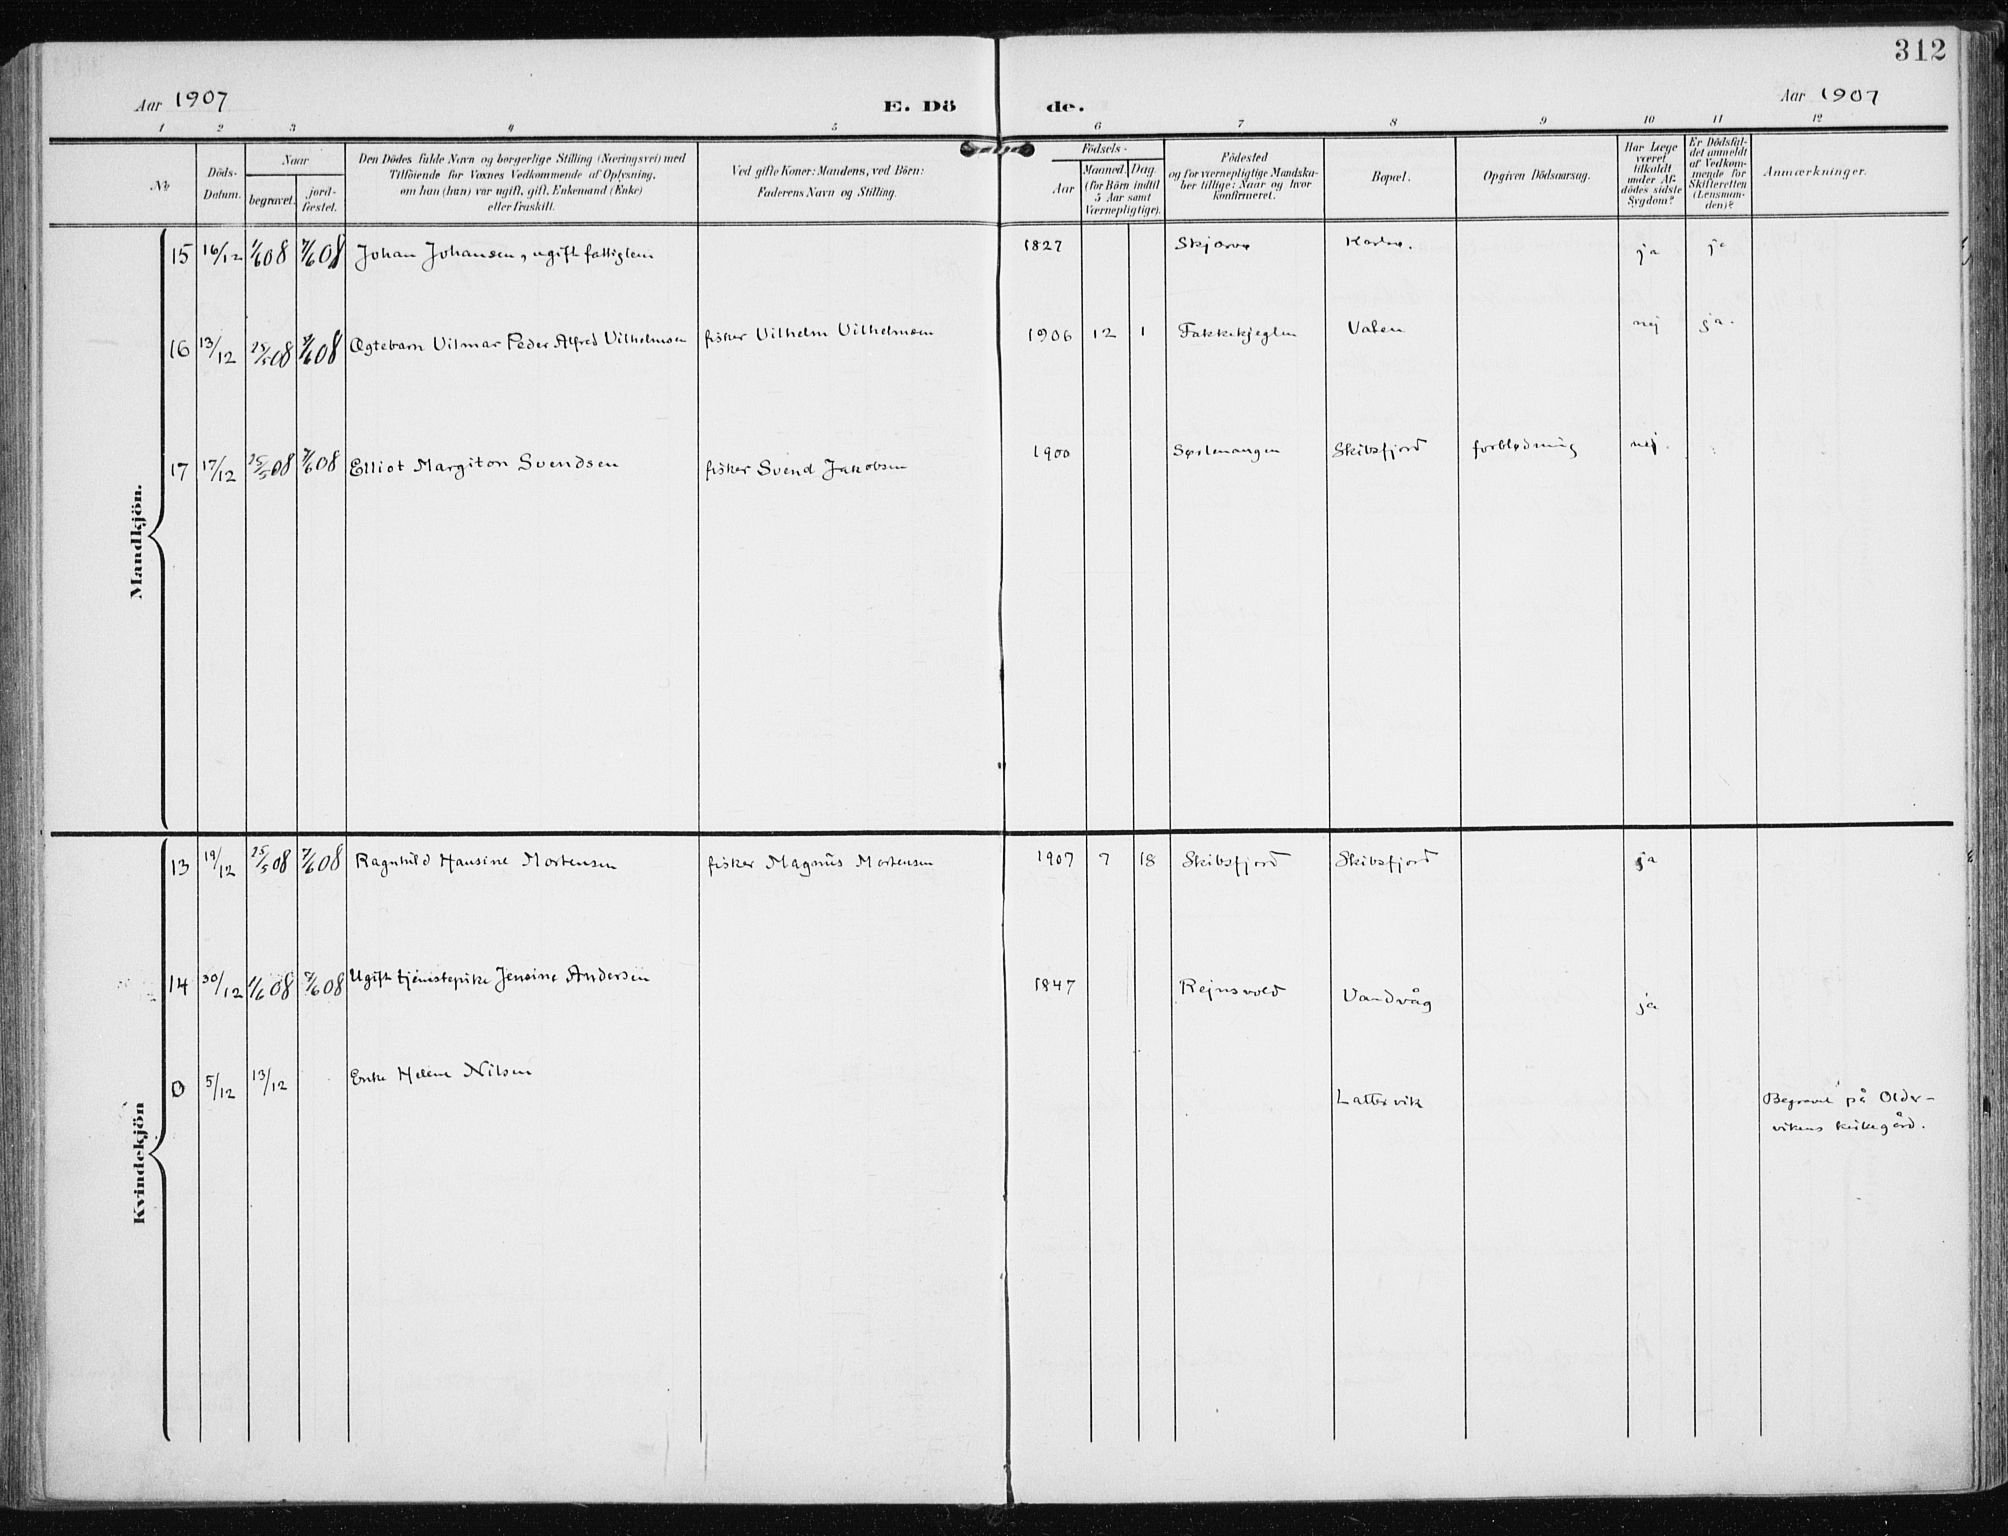 312
Aar 1907
E. Dö de.
Aar 1907
1 2 3 4 5 6 7 8 9 10 11 12
No
Döds-
Datum.
Naar
begravet.
jord-
fæstet.
Den Dödes fulde Navn og borgerlige Stilling (Næringsvei) med
Tilföiende för Voxnes Vedkommende af Oplysning,
om han (hun) var ugift, gift, Enkemand (Enke)
eller fraskilt.
Ved gifte Koner: Mandens, ved Börn:
Faderens Navn og Stilling.
Födsels-
Aar
Maaned. Dag.
(for Börn indtil
5 Aar samt
Værnepligtige).
Födested
og for værnepligtige Mandska-
ber tillige: Naar og hvor
konfirmeret.
Bopæl.
Opgiven Dödsaarsag.
Har Læge
været
tilkaldt
under Af-
dödes sidste
Sygdom?
Er Dödsfal-
det anmeldt
af Vedkom-
mende for
Skifteretten
(Lensman-
den)?
Anmærkninger.
Mandkjön.
15 16/12 1/6 08 7/6 08 Johan Johansen, ugift fattiglem 1827 Skjærvø ja ja
16 13/12 25/5 08 7/6 08 Ægtebarn Vilmar Peder Alfred Vilhelmsen fisker Vilhelm Vilhelmsen 1906 12 1 nej ja.
17 17/12 25/5 08 7/6 08 Elliot Margiton Svendsen fisker Svend Jakobsen 1900 Sørlenangen Skibsfjord forblødning nej.
Kvindekjön
13 19/12 25/5 08 7/6 08 Ragnhild Hansine Mortensen fisker Magnus Mortensen 1907 7 18 Skibsfjord Skibsfjord ja
14 30/12 1/6 08 7/6 08 Ugift tjenestepike Jensine Andersen 1847 Rejnsvold Vandvåg ja
0 5/12 13/12 Enke Helene Nilsen Lattervik Begravet på Oldr-
vikens kirkegård.